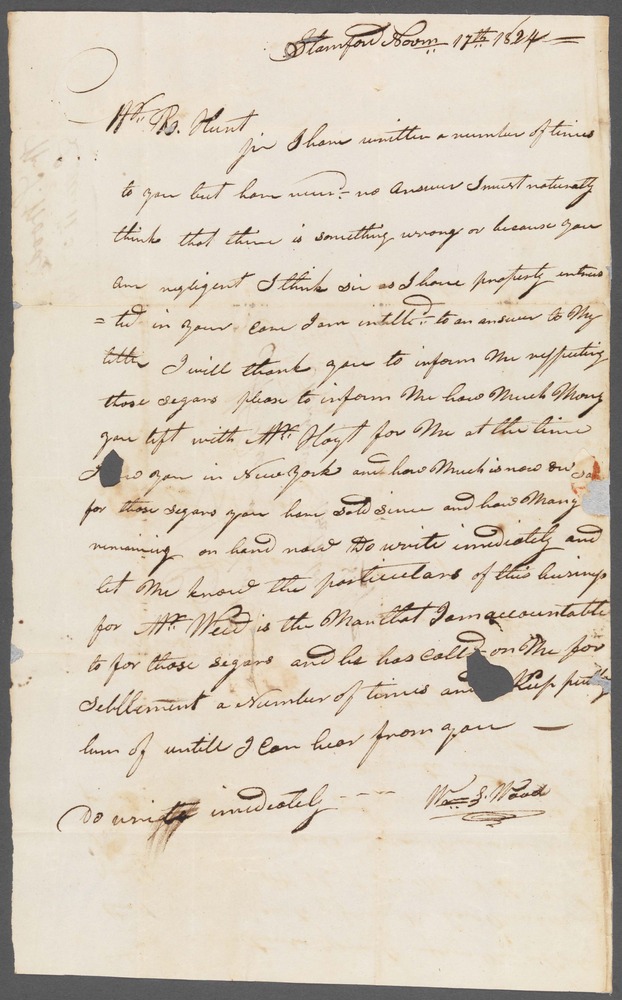 Stamford Novm 17th 1824
Mr Hunt
Sir I have written a number of times
to you but have recd no answer I must naturally
think that there is something wrong or because you
are negligent I think sir as I have property entrus
=ted in your care I am intitled to an answer to My
letter I will thank you to inform Me respecting
those segars please to inform Me how Much Mony
you left with Mr Hoyt for Me at the time
you in New York and how Much is now due
for those segars you have sold since and how Many
remaining on hand now Do write imediately and
let Me know the particulars of this business
for Mr Weed is the Man that I am accountable
to for those segars and he has called on Me for
settlement a Number of times and Keep putting
him of untill I Can hear from you
Do write imediately Wm S. Wood